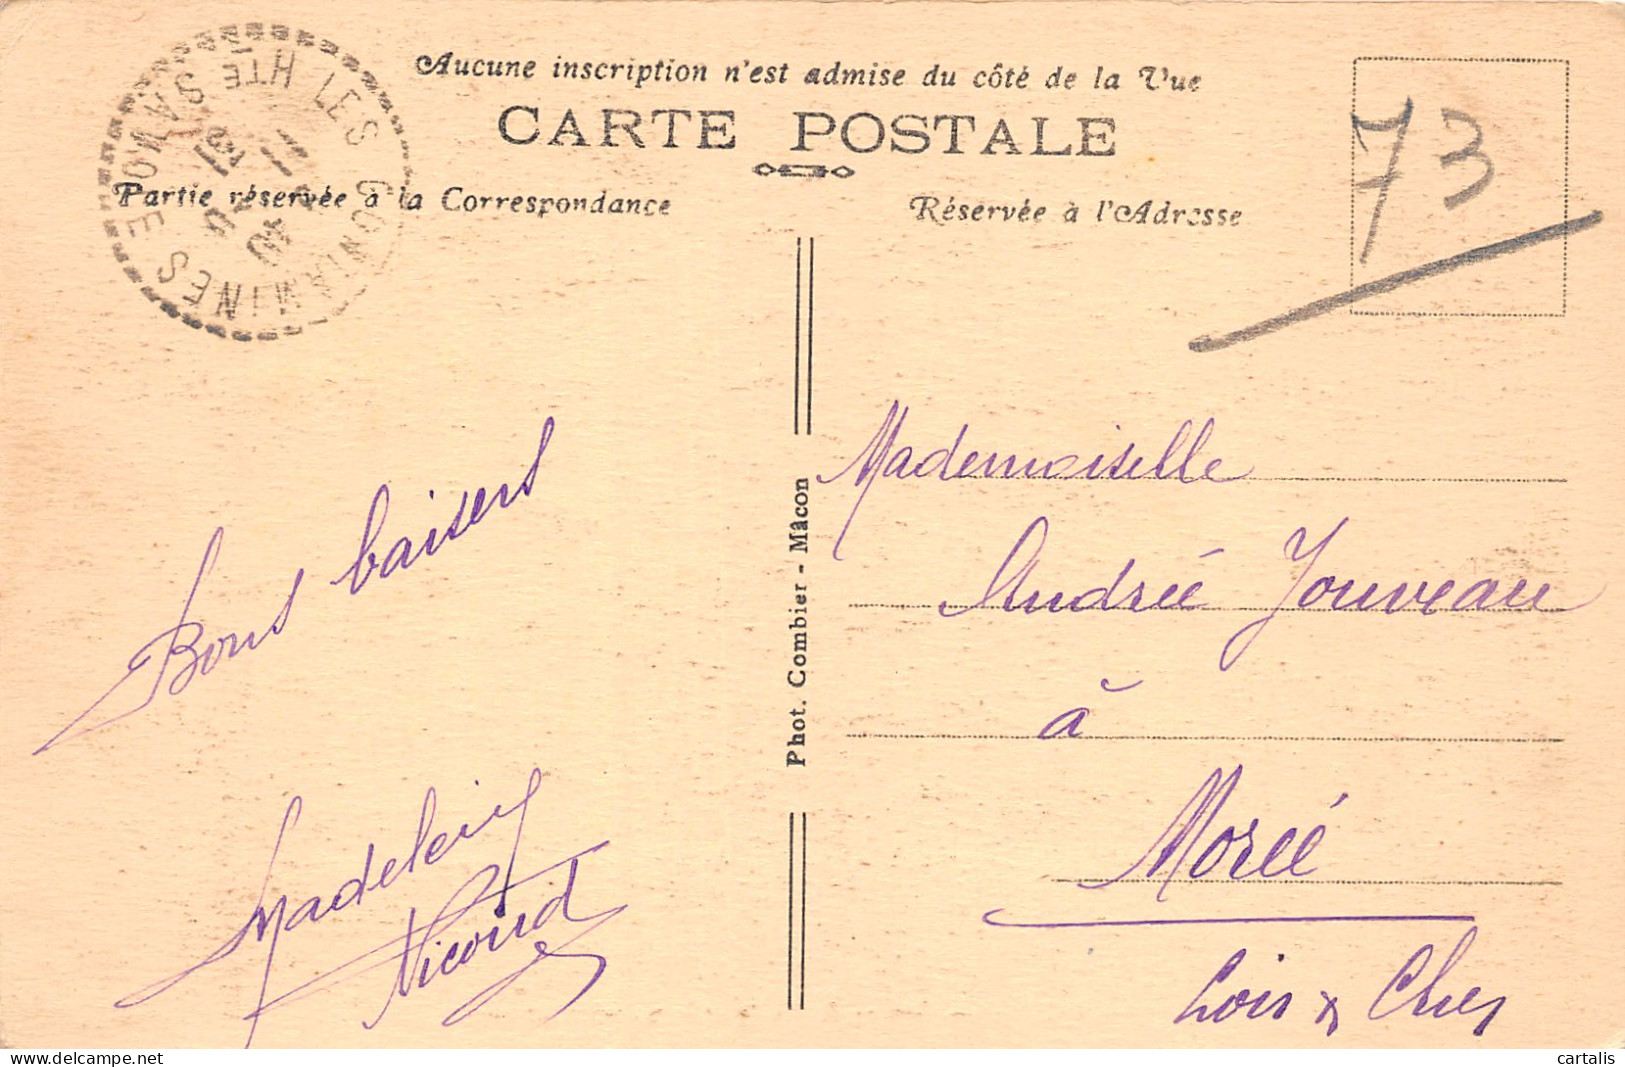 Aucune inscription n'est admise du côté de la Vue
CARTE POSTALE
Partie réservée à la Correspondance
Réservée à l'Adresse
LES CONTAMINES HTE SAVOIE
73
Bons baisers
Madeleine
Nicoud
Phot. Combier - Mâcon
Mademoiselle
Andrée Jouveau
à
Morée
Loir & Cher
cartalis